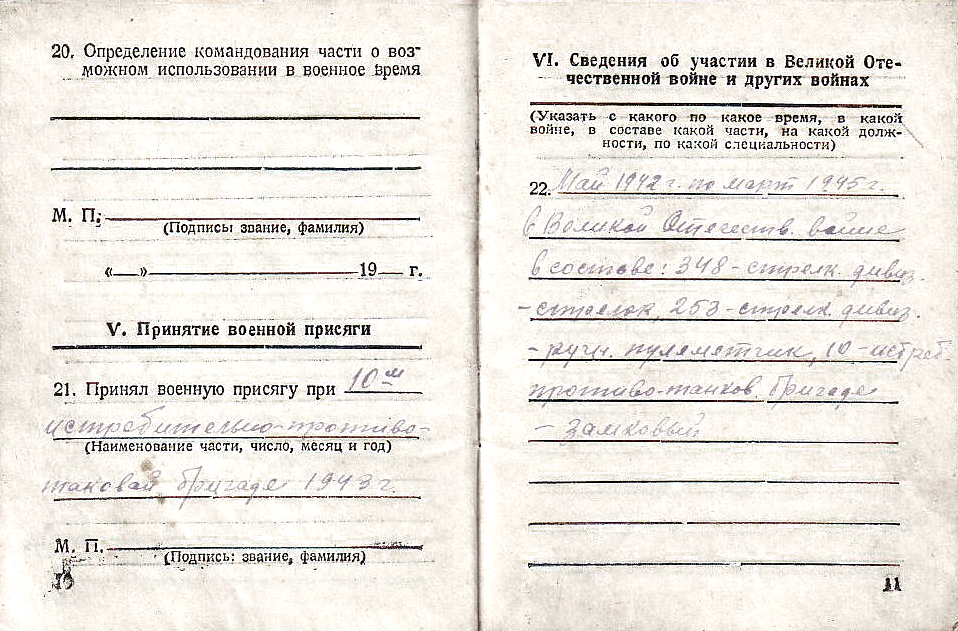 20. Определение командования части о воз-
можном использовании в военное время
М. П.
(Подпись: звание, фамилия)
«—» 19— г.
V. Принятие военной присяги
21. Принял военную присягу при 10ой
истребительно-противо-
(Наименование части, число, месяц и год)
таковай бригаде 1943 г.
М. П.
(Подпись: звание, фамилия)
10
VI. Сведения об участии в Великой Оте-
чественной войне и других войнах
(Указать с какого по какое время, в какой
войне, в составе какой части, на какой долж-
ности, по какой специальности)
22. Май 1942 г. по март 1945 г.
в Великой Отечеств. войне
в составе: 348 - стрелк. дивиз.
- стрелок, 253 - стрелк. дивиз.
- ручн. пулеметчик, 10 - истреб.
противо-танков. бригаде
- замковый
11